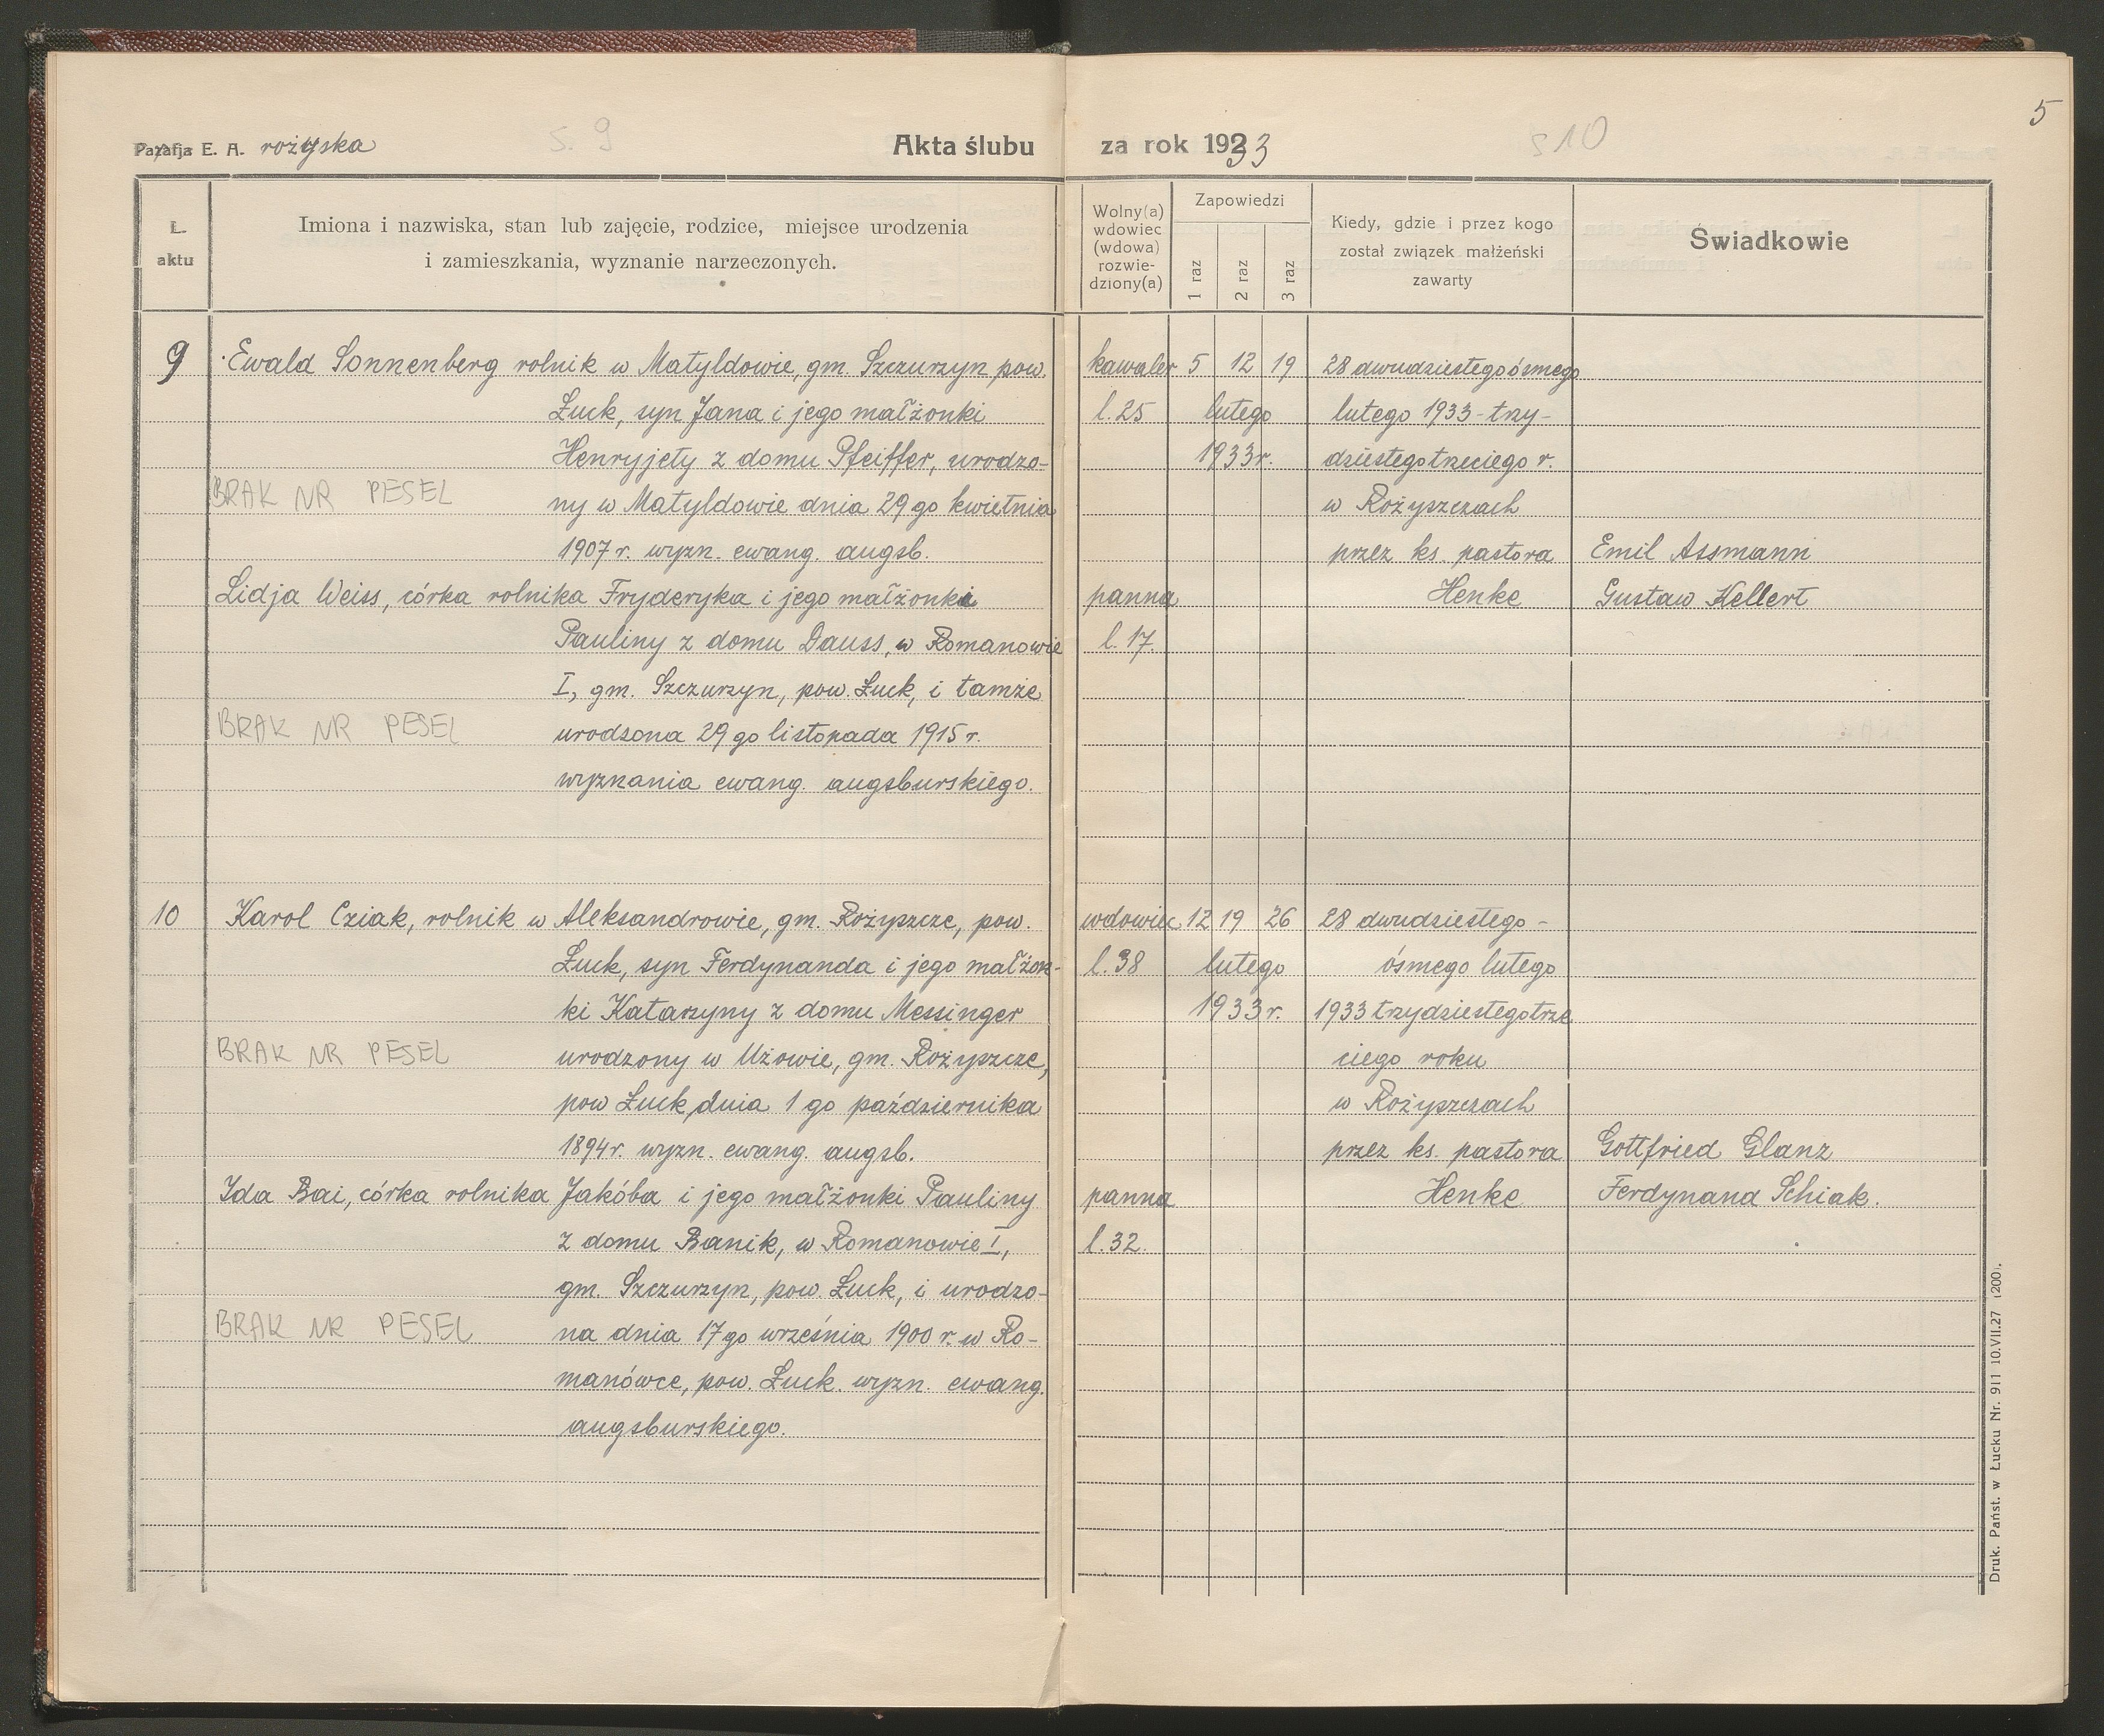 5
Parafja E. A. rożyska
s. 9
Akta ślubu
za rok 1933
s 10
Ł.
aktu
Imiona i nazwiska, stan lub zajęcie, rodzice, miejsce urodzenia
i zamieszkania, wyznanie narzeczonych.
Wolny(a)
wdowiec
(wdowa)
rozwie-
dziony(a)
Zapowiedzi
1 raz
2 raz
3 raz
Kiedy, gdzie i przez kogo
został związek małżeński
zawarty
Świadkowie
9
Ewald Sonnenberg rolnik w Matyldowie, gm. Szczurzyn pow.
Łuck, syn Jana i jego małżonki
Henryjety z domu Pfeiffer, urodzo-
BRAK NR PESEL
ny w Matyldowie dnia 29 go kwietnia
1907 r. wyzn. ewang. augsb.
Lidja Weiss, córka rolnika Fryderyka i jego małżonki
Pauliny z domu Dauss, w Romanowie
I, gm. Szczurzyn, pow. Łuck, i tamże
BRAK NR PESEL
urodzona 29 go listopada 1915 r.
wyznania ewang. augsburskiego.
kawaler
l. 25
panna
l. 17.
5 12 19
lutego
1933 r.
28 dwudziestego ósmego
lutego 1933 - trzy-
dziestego trzeciego r.
w Rożyszczach
przez ks. pastora
Henke
Emil Assmann
Gustaw Kellert
10
Karol Cziak, rolnik w Aleksandrowie, gm. Rożyszcze, pow.
Łuck, syn Ferdynanda i jego małżon-
ki Katarzyny z domu Messinger
BRAK NR PESEL
urodzony w Użowie, gm. Rożyszcze,
pow Łuck, dnia 1 go października
1894 r. wyzn. ewang. augsb.
Ida Bai, córka rolnika Jakóba i jego małżonki Pauliny
z domu Banik, w Romanowie I,
gm. Szczurzyn, pow. Łuck, i urodzo-
BRAK NR PESEL
na dnia 17 go września 1900 r. w Ro-
manówce, pow. Łuck. wyzn. ewang.
augsburskiego.
wdowiec
l. 38
panna
l. 32.
12 19 26
lutego
1933 r.
28 dwudziestego -
ósmego lutego
1933 trzydziestego trze
ciego roku
w Rożyszczach
przez ks. pastora
Henke
Gottfried Glanz
Ferdynand Schiak.
Druk. Państ. w Łucku Nr. 911 10.VII.27 (200).